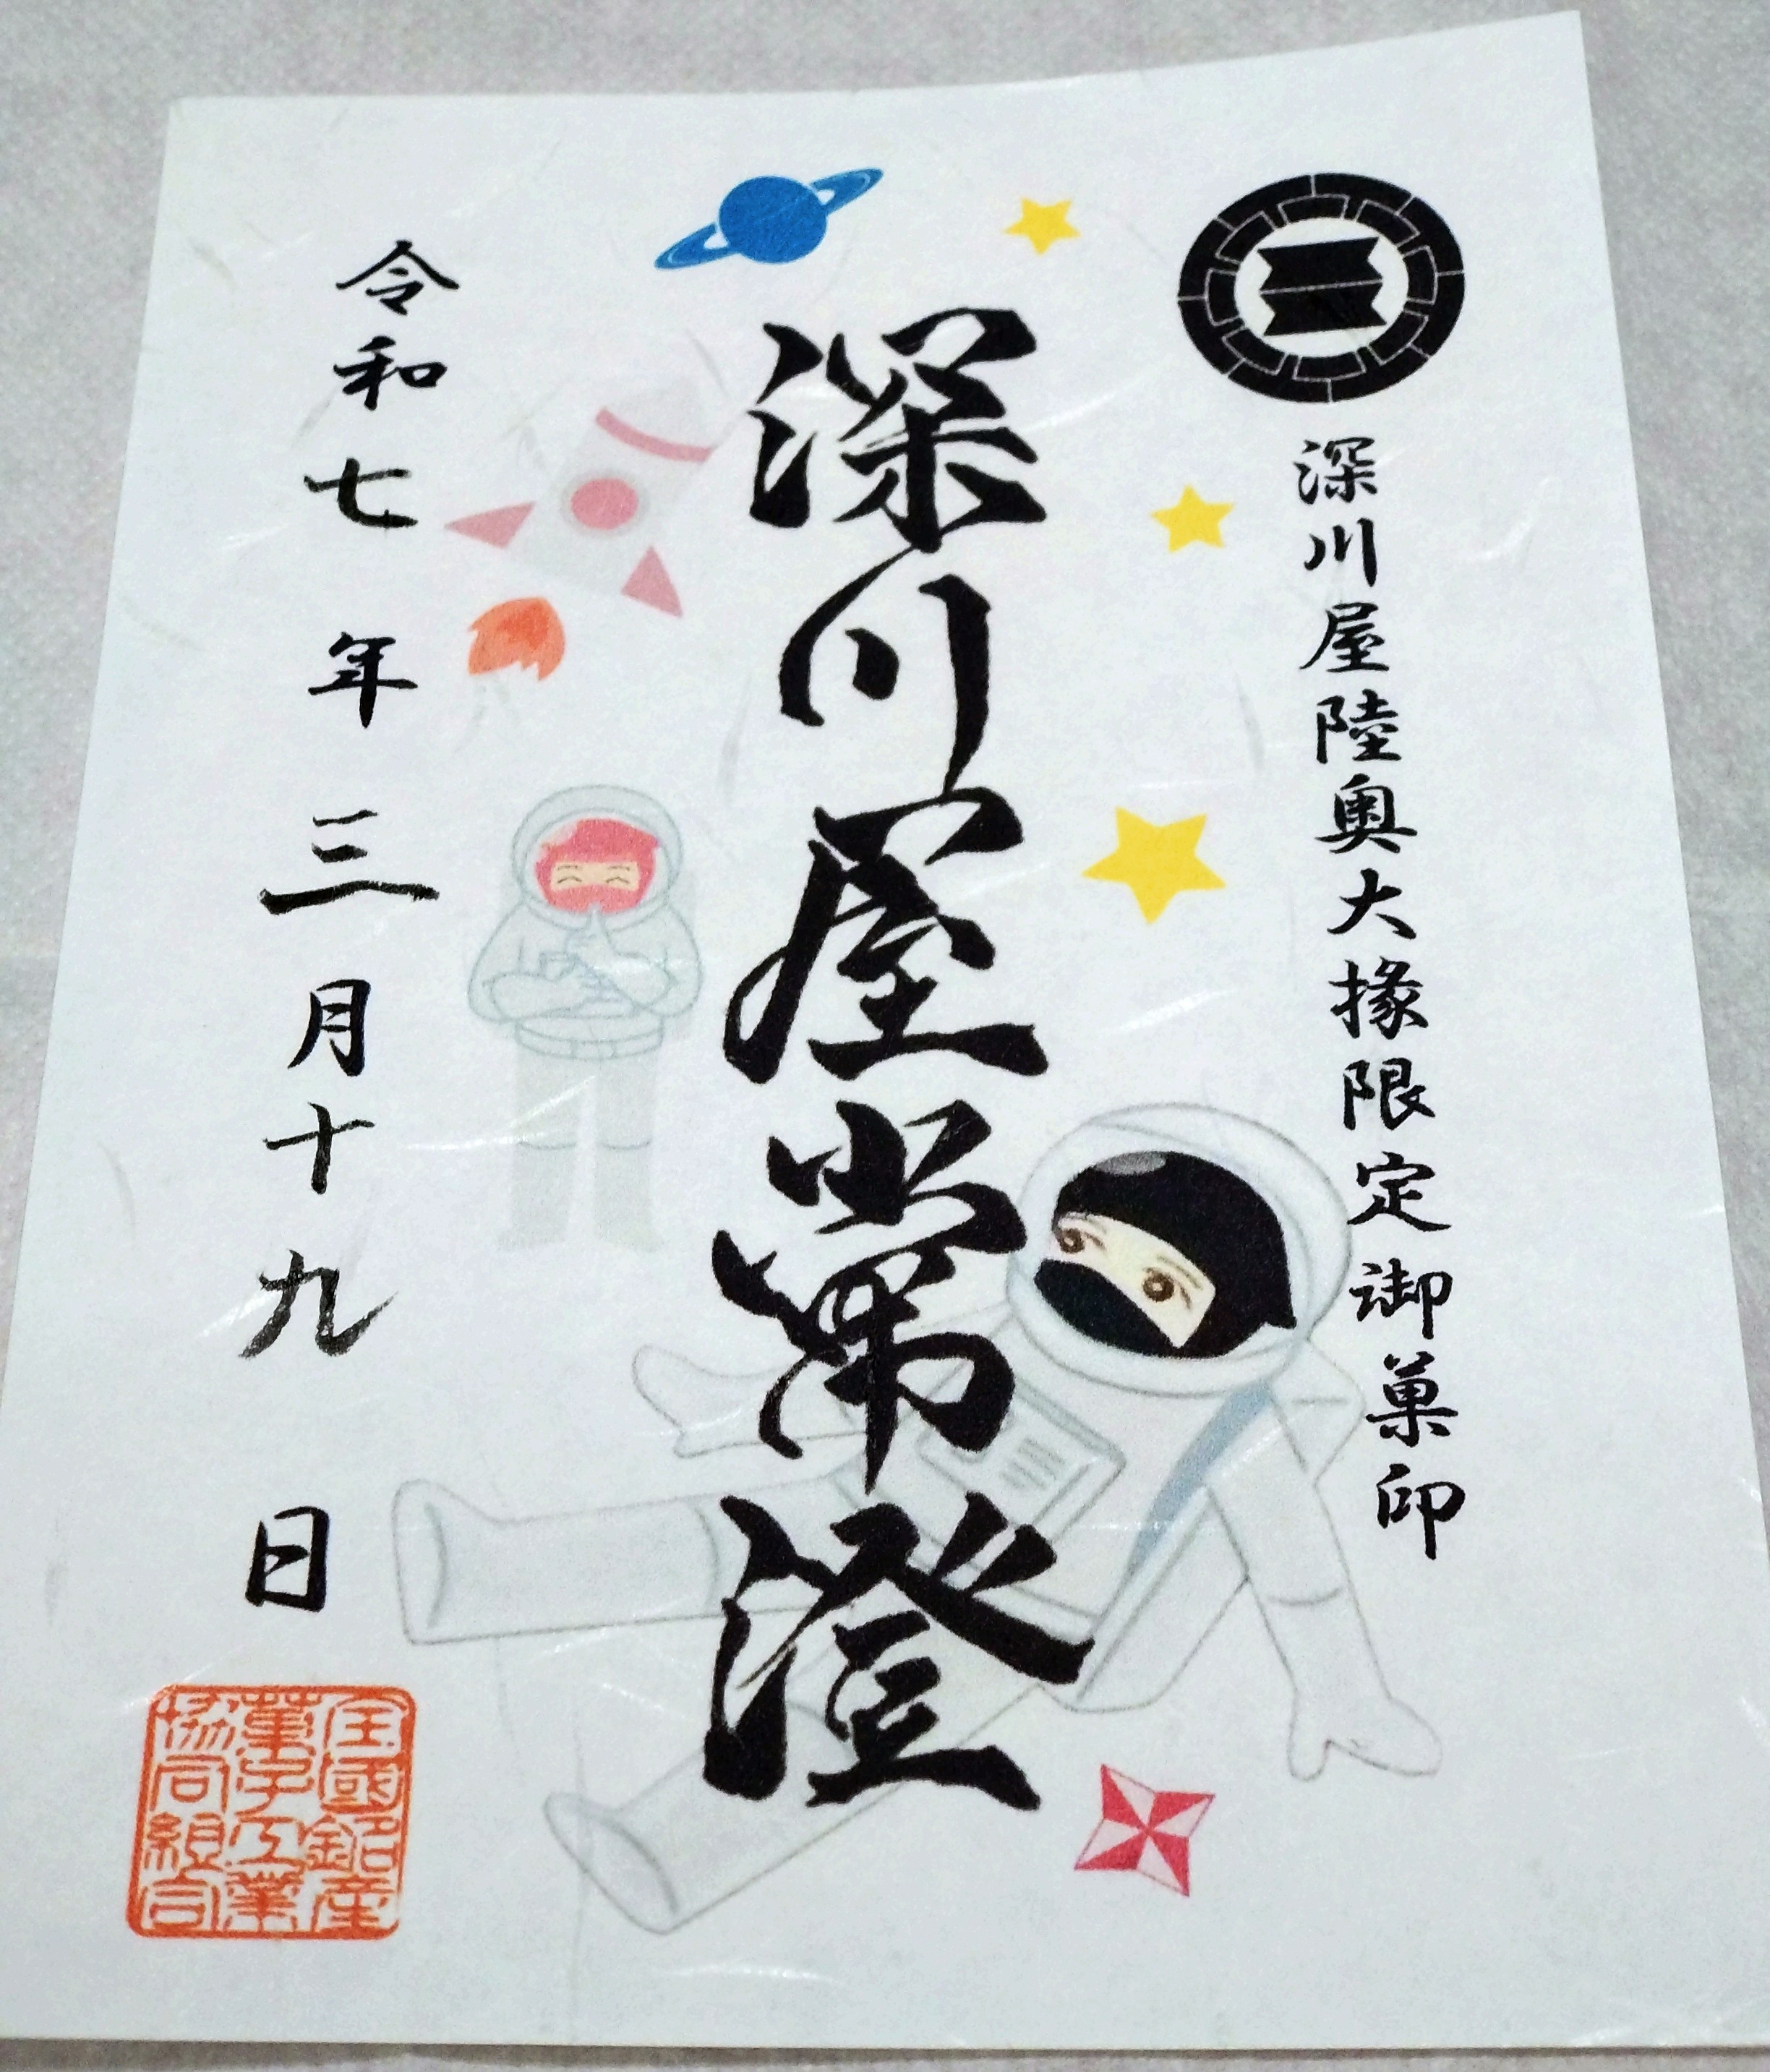 深川屋陸奥大掾限定御菓印
深川屋常澄
令和七年三月十九日
全國銘産
菓子工業
協同組合